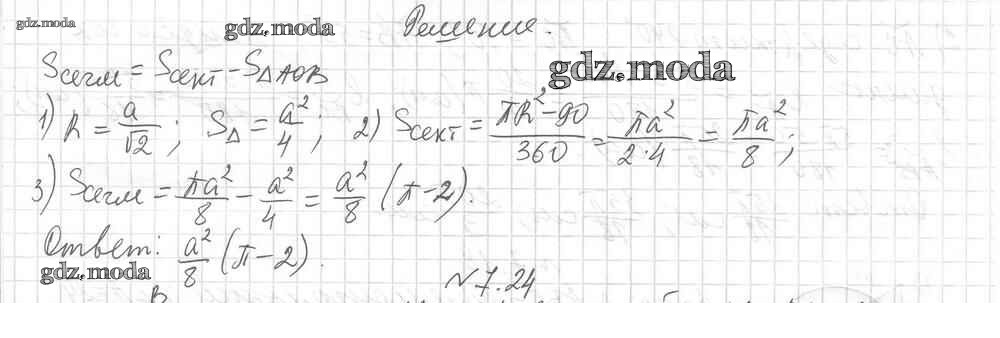 gdz.moda
gdz.moda
Решение.
Sсегм = Sсект - S△AOB
gdz.moda
1) R = a/√2; S△ = a²/4; 2) Sсект = πR²-90/360 = πa²/2·4 = πa²/8;
3) Sсегм = πa²/8 - a²/4 = a²/8 (π-2).
Ответ: a²/8 (π-2).
gdz.moda
№7.24